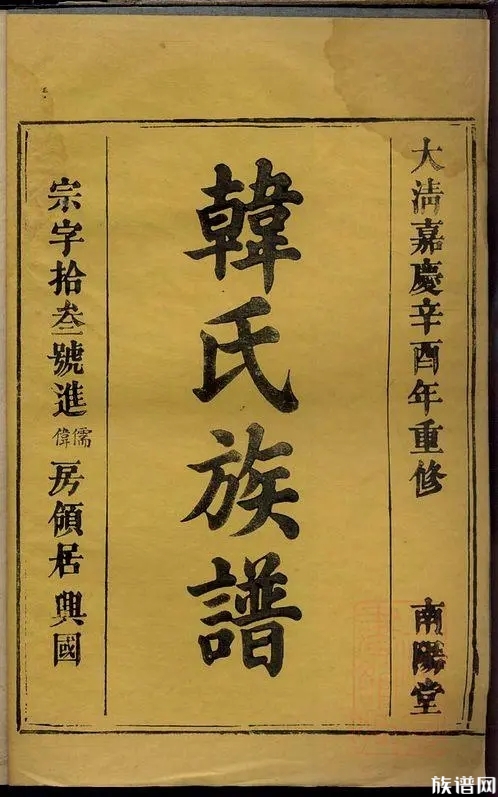 大清嘉慶辛酉年重修 南陽堂
韓氏族譜
宗字拾叁號進儒偉房領居興國
族谱网